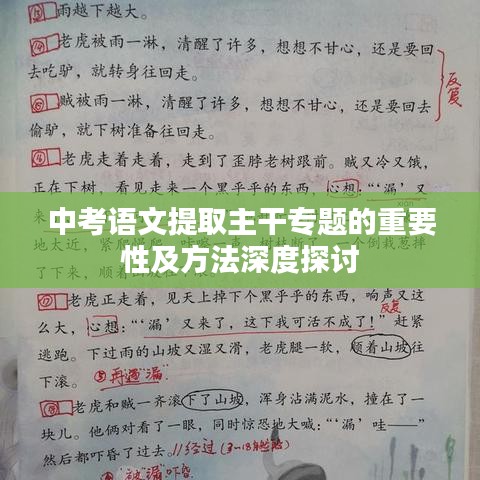 ③雨越下越大。
④老虎被雨一淋，清醒了许多，想想不甘心，还是要回
去吃驴，就转身往回走。
反复
⑤贼被雨一淋，清醒了许多，想想不甘心，还是要回去
偷驴，就下树准备往回走。
老虎走着走着，走到了歪脖老树跟前。贼又冷又饿，
正在下树，看见走来一个黑乎乎的东西，心想：“‘漏’又
中考语文提取主干专题的重要
性及方法深度探讨
老虎正走着，见天上掉下个黑乎乎的东西，响声又这
反复
么大，心想：“‘漏’又来了，这下我可活不成了！”赶紧
逃跑。下过雨的山坡又湿又滑，老虎腿一软，顺着山坡往
下滚。
⑤再遇“漏”
老虎和贼一齐滚下了山坡，浑身沾满泥水，撞在了一
块儿。他俩对看了一眼，同时惊恐地大喊：“‘漏’哇——”
然后都吓昏了过去。
//经过
“漏”吓昏